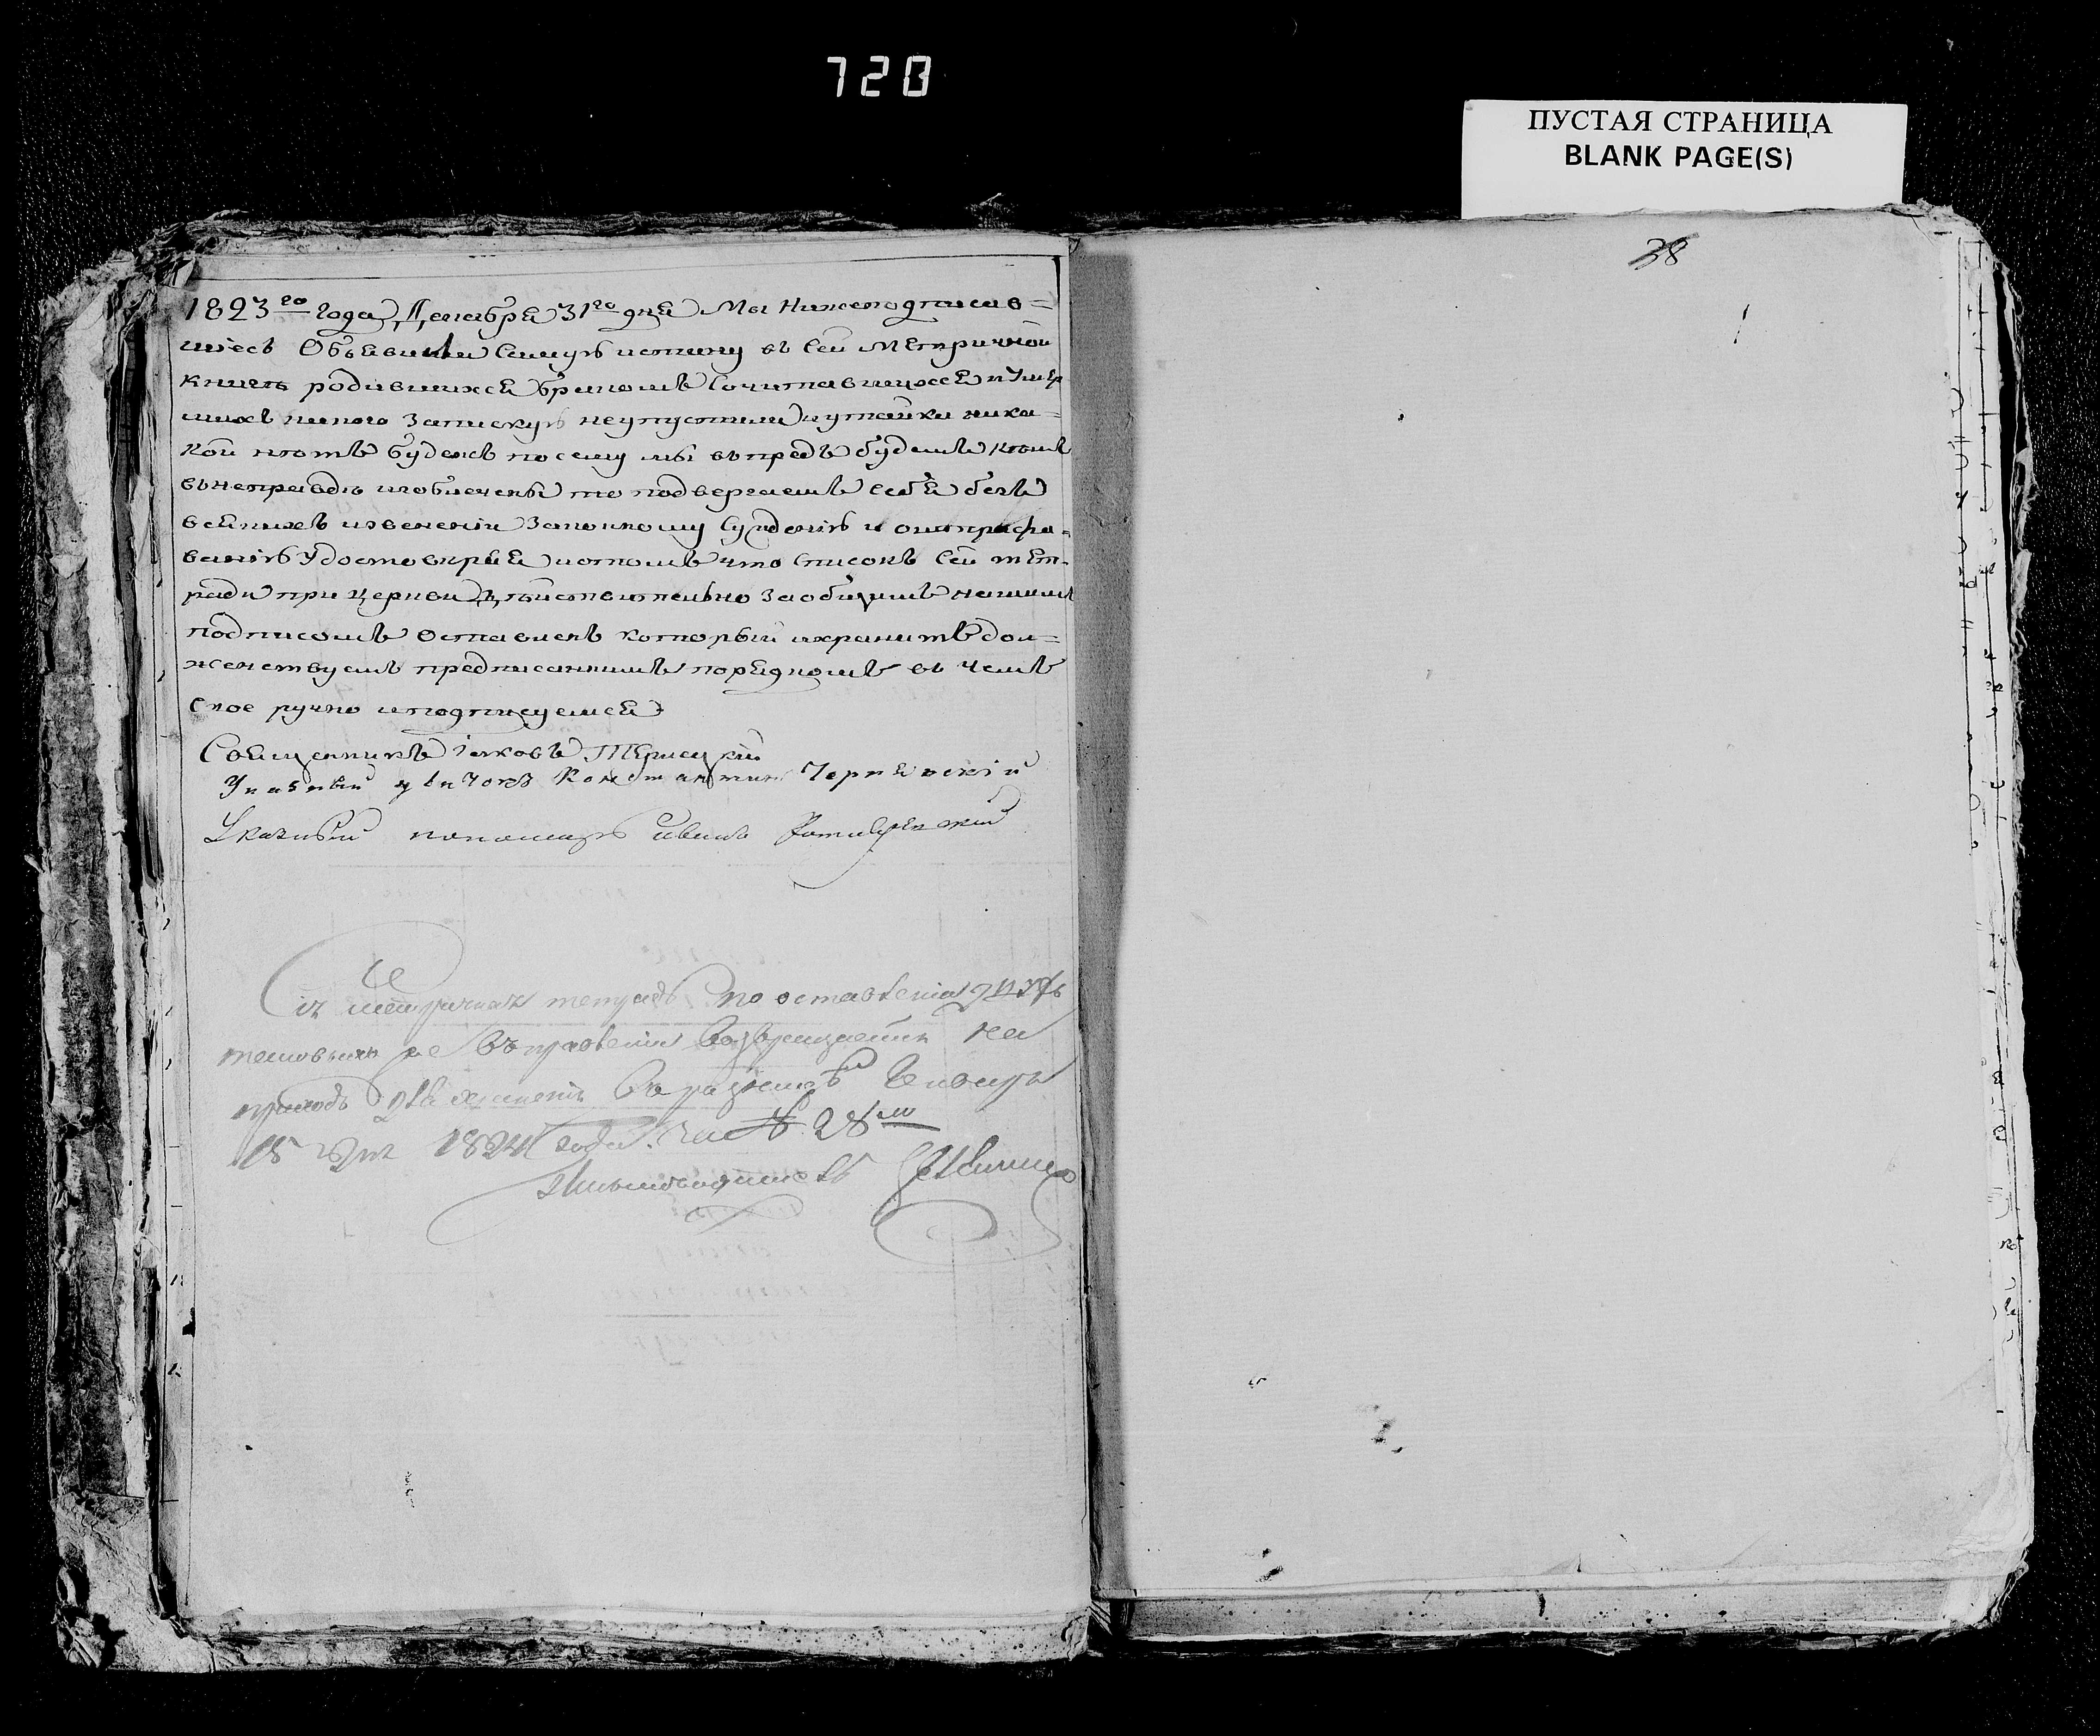 728
ПУСТАЯ СТРАНИЦА
BLANK PAGE(S)
38
1823го года Декабря 31го дня Мы Нижеподписав=
шіесь Объявили самую истину въ сей Метричной
книгъ родившихся бракомъ сочитавшихся и умер
шихъ никого запискую неупустили и утайки ника=
кой нютъ будежъ посему мы въпредь будемъ кѣмъ
въ неправдѣ изобличены то подвергаемъ себя безъ
всякихъ извененіи законному сужденію и оштрафо=
ванію удостовѣряя и отомъ что списокъ сей тет=
ради при церкви дѣйствительно заобщимъ нашимъ
подписомъ оставленъ который и хранить дол=
женствуемъ предписаннымъ порядкомъ въ чемъ
свое ручно и подписуемся
Священникъ Іаковъ
Указный дьячокъ Константинъ Чернявскій
Указный пономарь Иванъ
Сія метричная тетрадь по оставленіи
въ правленіи возвращается на
приходъ для храненія въ ризницѣ
15 дня 1824 года. № 28